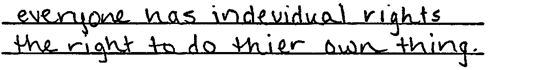 everyone has indevidual rights
the right to do thier own thing.